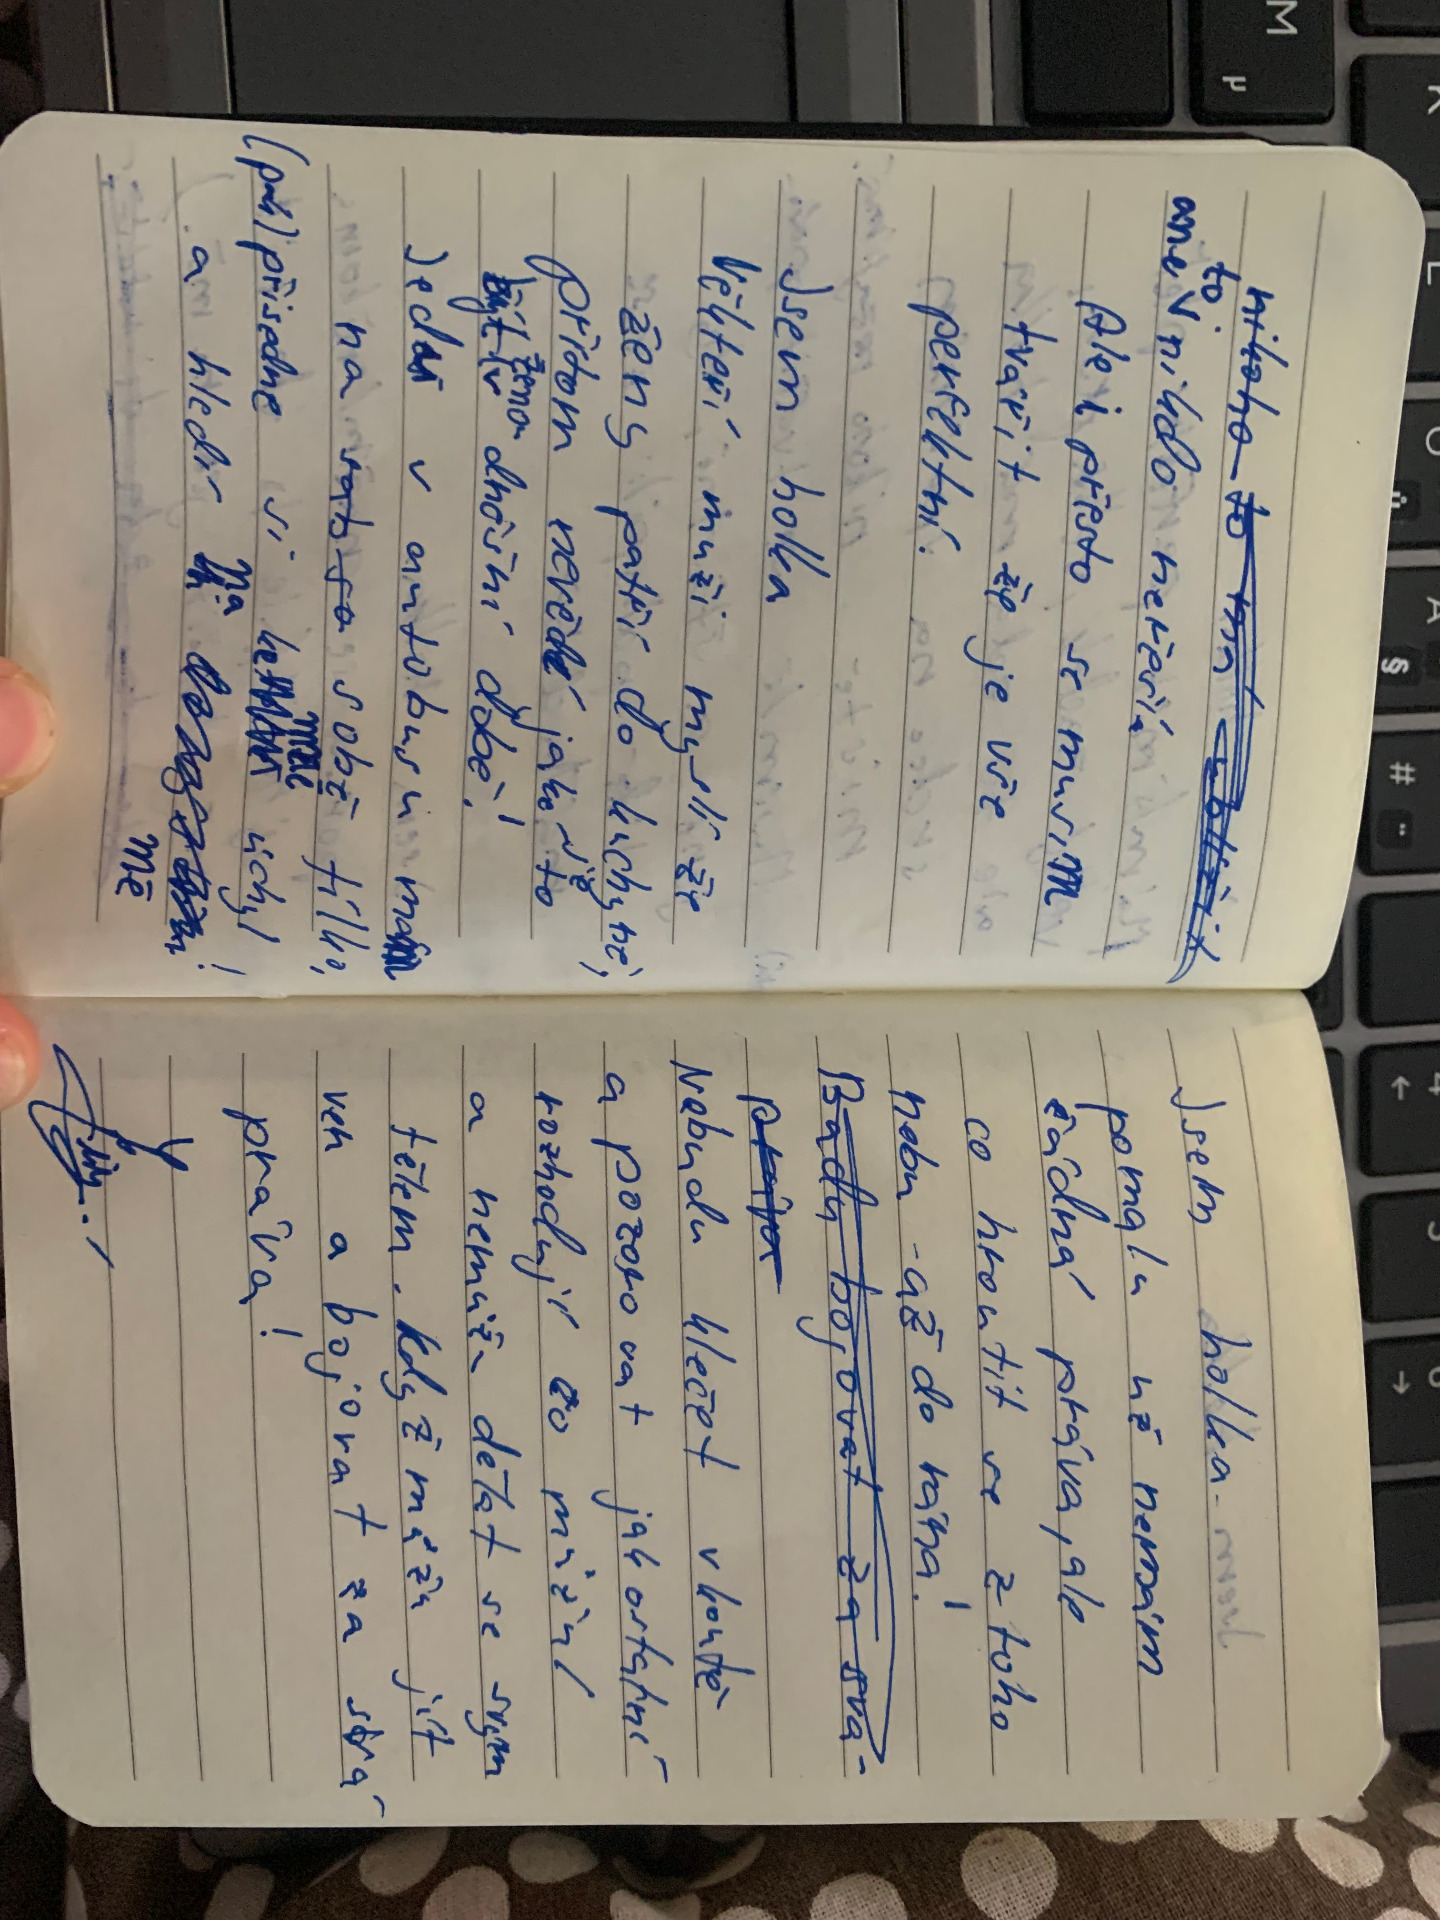 nikoho to
to
ane v nikdo neřeší.
Ale i přesto se musím
tvářit že je vše
perfektní.
Jsem holka
Někteří muži myslí že
ženy patří do kuchyně,
přitom nevědí jaké je to
být žena
v dnešní době!
Jedu v autobusu mám
na sobě tílko,
(pak) přisedne si ke mně úchyl
a hledí na
mě!
Jsem holka -
pomalu už nemám
žádná práva, ale
co hroutit se z toho
nebu - až do rána!
Budu bojovat za svá
práva
Nebudu klečet v koutě
a pozorovat jak ostatní
rozhodují co můžu/
a nemůžu dělat se svým
tělem. Když můžu jít
ven a bojovat za svá
práva!
M
µ
K
L
A
§
#
4
←
→